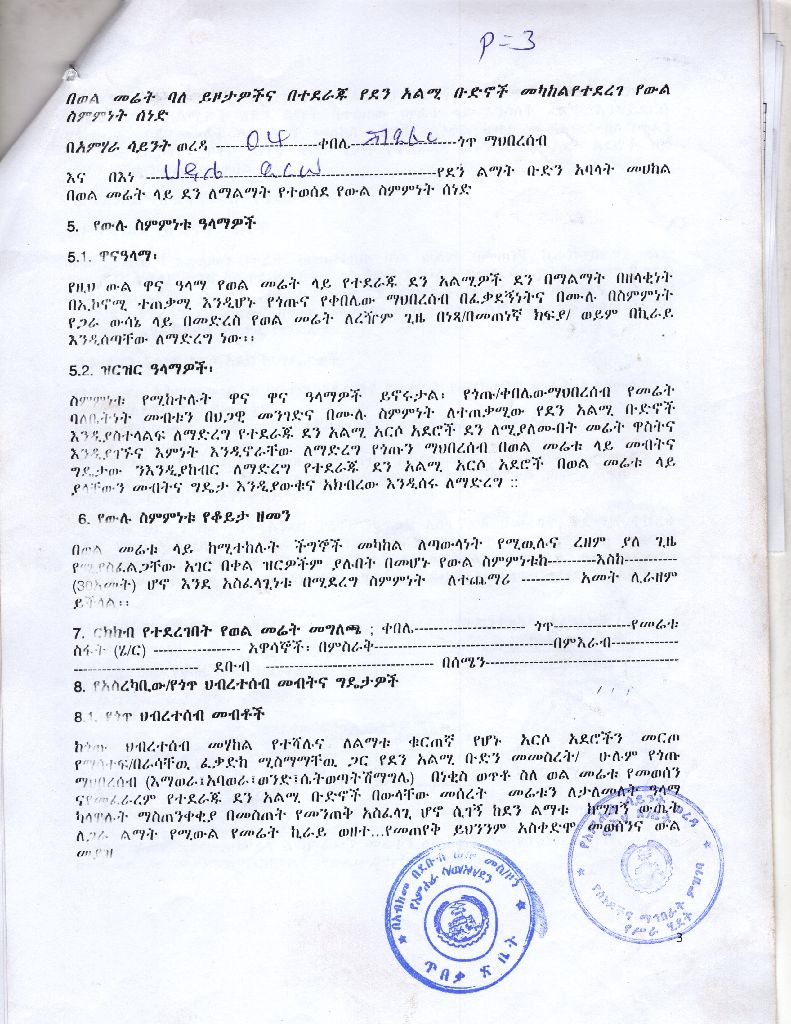 P=3
በወል መሬት ባለ ይዞታዎችና በተደራጁ የደን አልሚ ቡድኖች መካከልየተደረገ የውል
ስምምነት ሰነድ
በአምሃራ ሳይንት ወረዳ ----------- 04 --------ቀበሌ----------------ጎጥ ማህበረሰብ
እና በእነ ------------------------------------የደን ልማት ቡድን አባላት መሀከል
በወል መሬት ላይ ደን ለማልማት የተወሰደ የውል ስምምነት ሰነድ
5. የውሉ ስምምነቱ ዓላማዎች
5.1. ዋናዓላማ፡
የዚህ ውል ዋና ዓላማ የወል መሬት ላይ የተደራጁ ደን አልሚዎች ደን በማልማት በዘላቂነት
በኢኮኖሚ ተጠቃሚ እንዲሆኑ የጎጡና የቀበሌው ማህበረሰብ በፈቃደኝነትና በሙሉ በስምምነት
የጋራ ውሳኔ ላይ በመድረስ የወል መሬት ለረዥም ጊዜ በነጻ/በመጠነኛ ክፍያ/ ወይም በኪራይ
እንዲሰጣቸው ለማድረግ ነው፡፡
5.2. ዝርዝር ዓላማዎች፡
ስምምነቱ የሚከተሉት ዋና ዋና ዓላማዎች ይኖሩታል፡ የጎጡ/ቀበሌውማህበረሰብ የመሬት
ባለቤትነት መብቱን በህጋዊ መንገድና በሙሉ ስምምነት ለተጠቃሚው የደን አልሚ ቡድኖች
እንዲያስተላልፍ ለማድረግ የተደራጁ ደን አልሚ አርሶ አደሮች ደን ለሚያለሙበት መሬት ዋስትና
እንዲያገኙና እምነት እንዲኖራቸው ለማድረግ የጎጡን ማህበረሰብ በወል መሬቱ ላይ መብትና
ግዴታው ንእንዲያከብር ለማድረግ የተደራጁ ደን አልሚ አርሶ አደሮች በወል መሬቱ ላይ
ያላቸውን መብትና ግዴታ እንዲያውቁና አክብረው እንዲሰሩ ለማድረግ ::
6. የውሉ ስምምነቱ የቆይታ ዘመን
በወል መሬቱ ላይ ከሚተከሉት ችግኞች መካከል ለጣውላነት የሚዉሉና ረዘም ያለ ጊዜ
የሚያስፈልጋቸው አገር በቀል ዝርዎችም ያሉበት በመሆኑ የውል ስምምነቱከ----------እስከ-----------
(30አመት) ሆኖ እንደ አስፈላጊነቱ በሚደረግ ስምምነት ለተጨማሪ ---------- አመት ሊራዘም
ይችላል፡፡
7. ርክክብ የተደረገበት የወል መሬት መግለጫ ; ቀበሌ----------------------- ጎጥ----------------የመሬቱ
ስፋት (ሄ/ር) ------------------ አዋሳኞች፡ በምስራቅ-------------------------------------በምእራብ--------------
-------------------------- ደቡብ ----------------------------------- በሰሜን----------------------------------------
8. የአስረካቢው/የጎጥ ህብረተሰብ መብትና ግዴታዎች
8.1. የጎጥ ህብረተሰብ መብቶች
ከጎጡ ህብረተሰብ መሃከል የተሻሉና ለልማቱ ቁርጠኛ የሆኑ አርሶ አደሮችን መርጦ
የማሳተፍ/በራሳቸዉ ፈቃድከ ሚስማማቸዉ ጋር የደን አልሚ ቡድን መመስረት/ ሁሉም የጎጡ
ማህበረሰብ (እማወራ፤አባወራ፣ወንድ፣ሴትወጣትሽማግሌ) በነቂስ ወጥቶ ስለ ወል መሬቱ የመወሰን
ናየመፈራረም የተደራጁ ደን አልሚ ቡድኖች በውላቸው መሰረት መሬቱን ለታለመለት ዓላማ
ካላዋሉት ማስጠንቀቂያ በመስጠት የመንጠቅ አስፈላጊ ሆኖ ሲገኝ ከደን ልማቱ ከሚገኝ ውጤት
ለጋራ ልማት የሚውል የመሬት ኪራይ ወዘተ...የመጠየቅ ይህንንም አስቀድሞ መወሰንና ውል
መያዝ
ጥበቃ ጽ ቤት
3